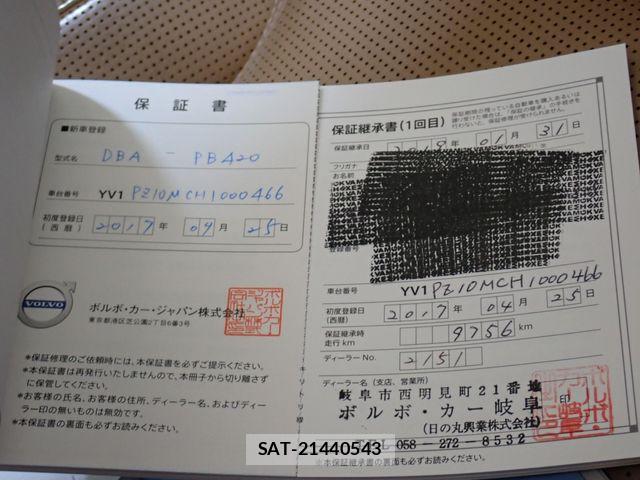 保証書
■新車登録
型式名 DBA － PB420
車台番号 YV1 PZ10MCH1000466
初度登録日（西暦） 2017年 04月 25日
VOLVO
ボルボ・カー・ジャパン株式会社
東京都港区芝公園2丁目6番3号
＊保証修理のご依頼時には、本保証書を必ずご提示ください。
＊本保証書は再発行いたしませんので、本冊子から切り離さずに保管してください。
＊お客様の氏名、お客様の住所、ディーラー名、およびディーラー印の無いものは無効です。
＊本保証書の裏面も必ずお読みください。
キリトリ線
保証継承書（1回目）
保証期間の残っている自動車を購入あるいは
譲り受けた場合は、「保証の継承」の手続きを
行わないと、保証修理が受けられません。
保証継承日 2019年 01月 31日
フリガナ
お名前
登録番号
車台番号 YV1 PZ10MCH1000466
初度登録日（西暦） 2017年 04月 25日
保証継承時走行km 9756 km
ディーラーNo. 2151
ディーラー名（支店、営業所）
岐阜市西明見町21番地
ボルボ・カー岐阜 印
（日の丸興業株式会社）
TEL 058-272-8532
＊本保証継承書の裏面も必ずお読みください。
SAT-21440543